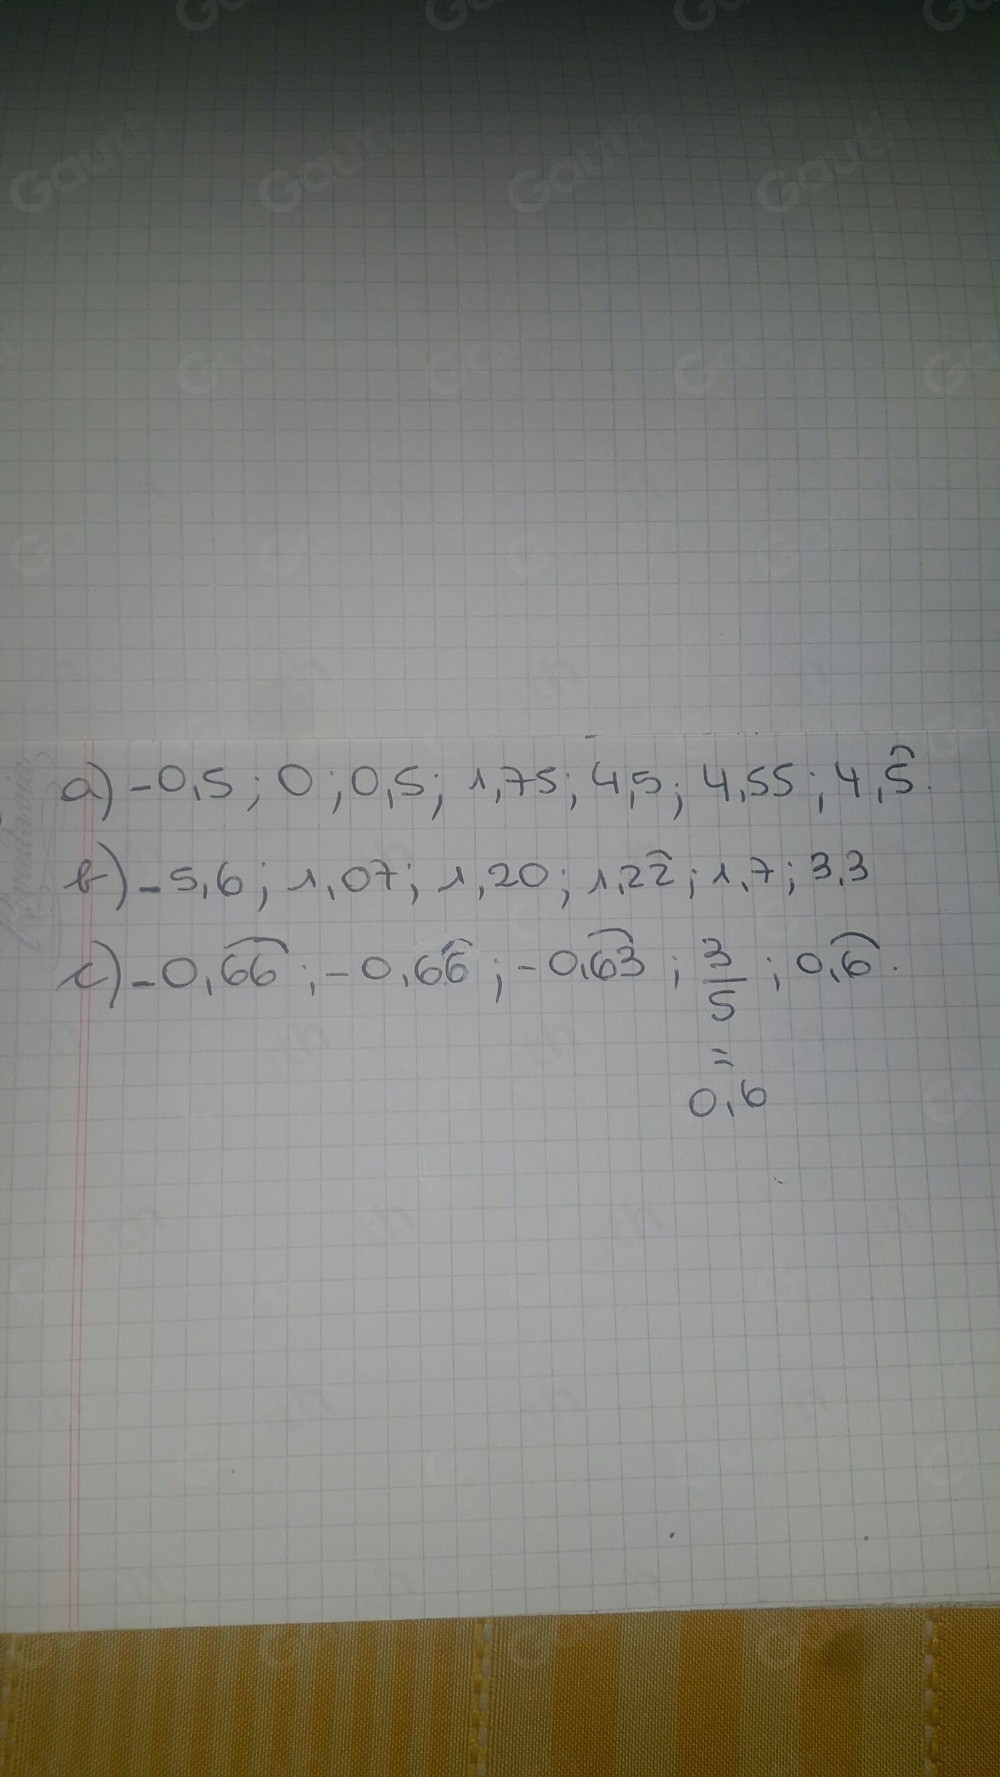 a) -0,5 ; 0 ; 0,5 ; 1,75 ; 4,5 ; 4,55 ; 4,5̂.
b) -5,6 ; 1,07 ; 1,20 ; 1,22̂ ; 1,7 ; 3,3
c) -0,6͡6 ; -0,66̂ ; -0,6͡3 ; 3/5 ; 0,6̂.
=
0,6